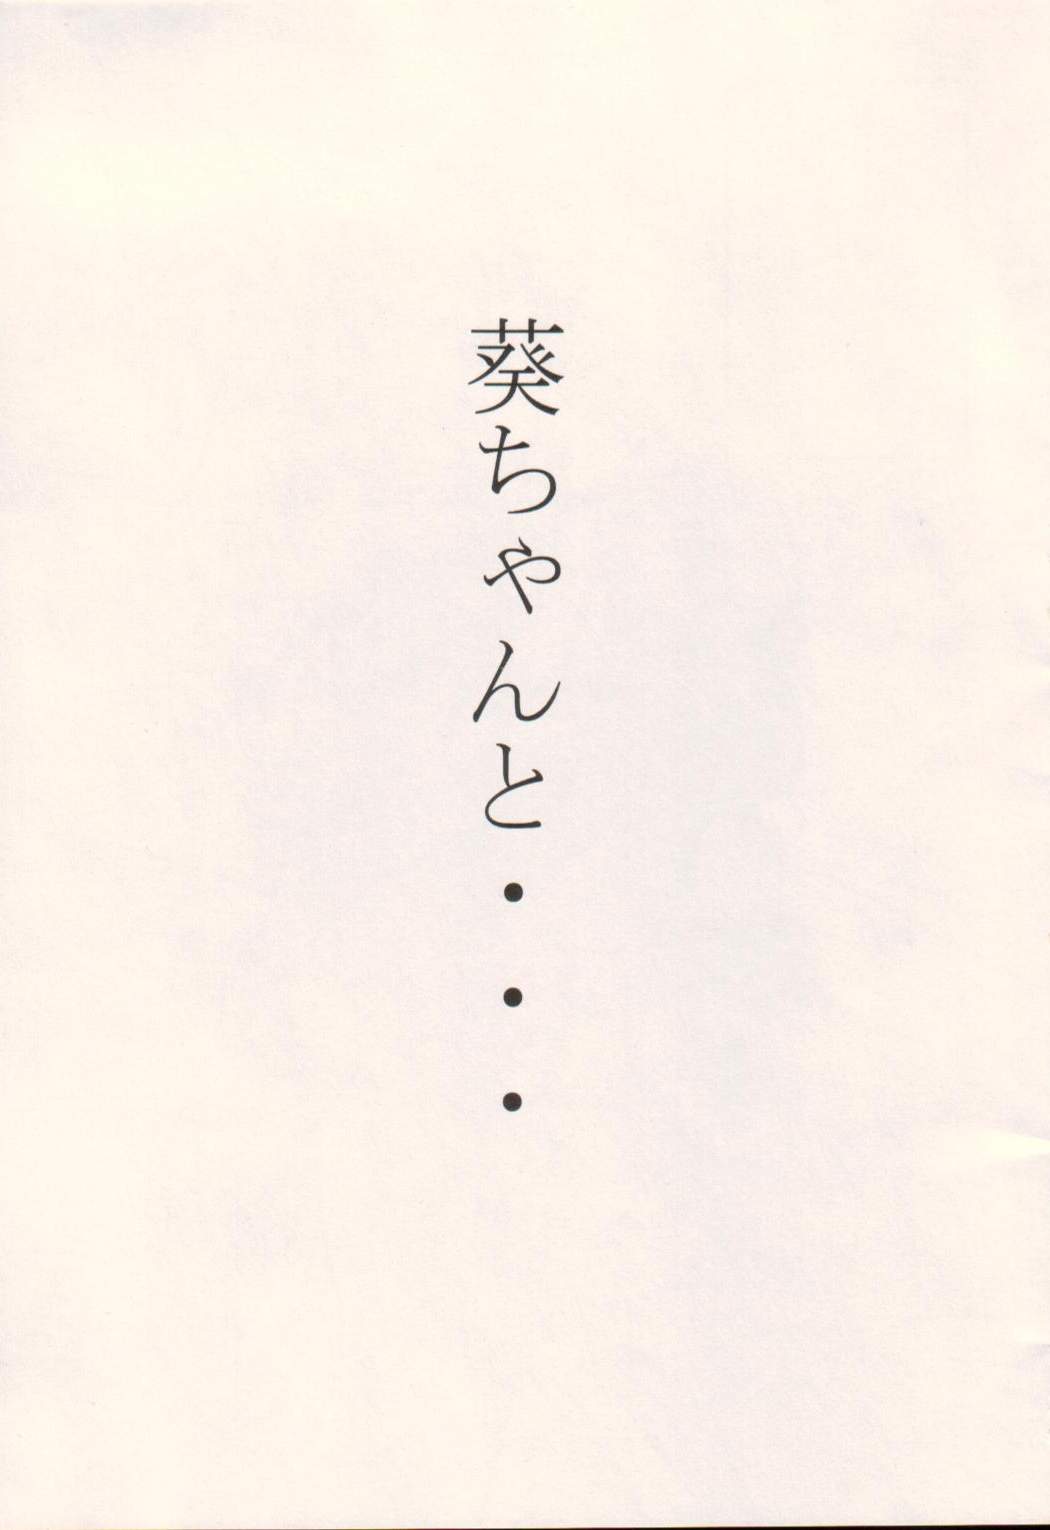 葵ちゃんと・・・